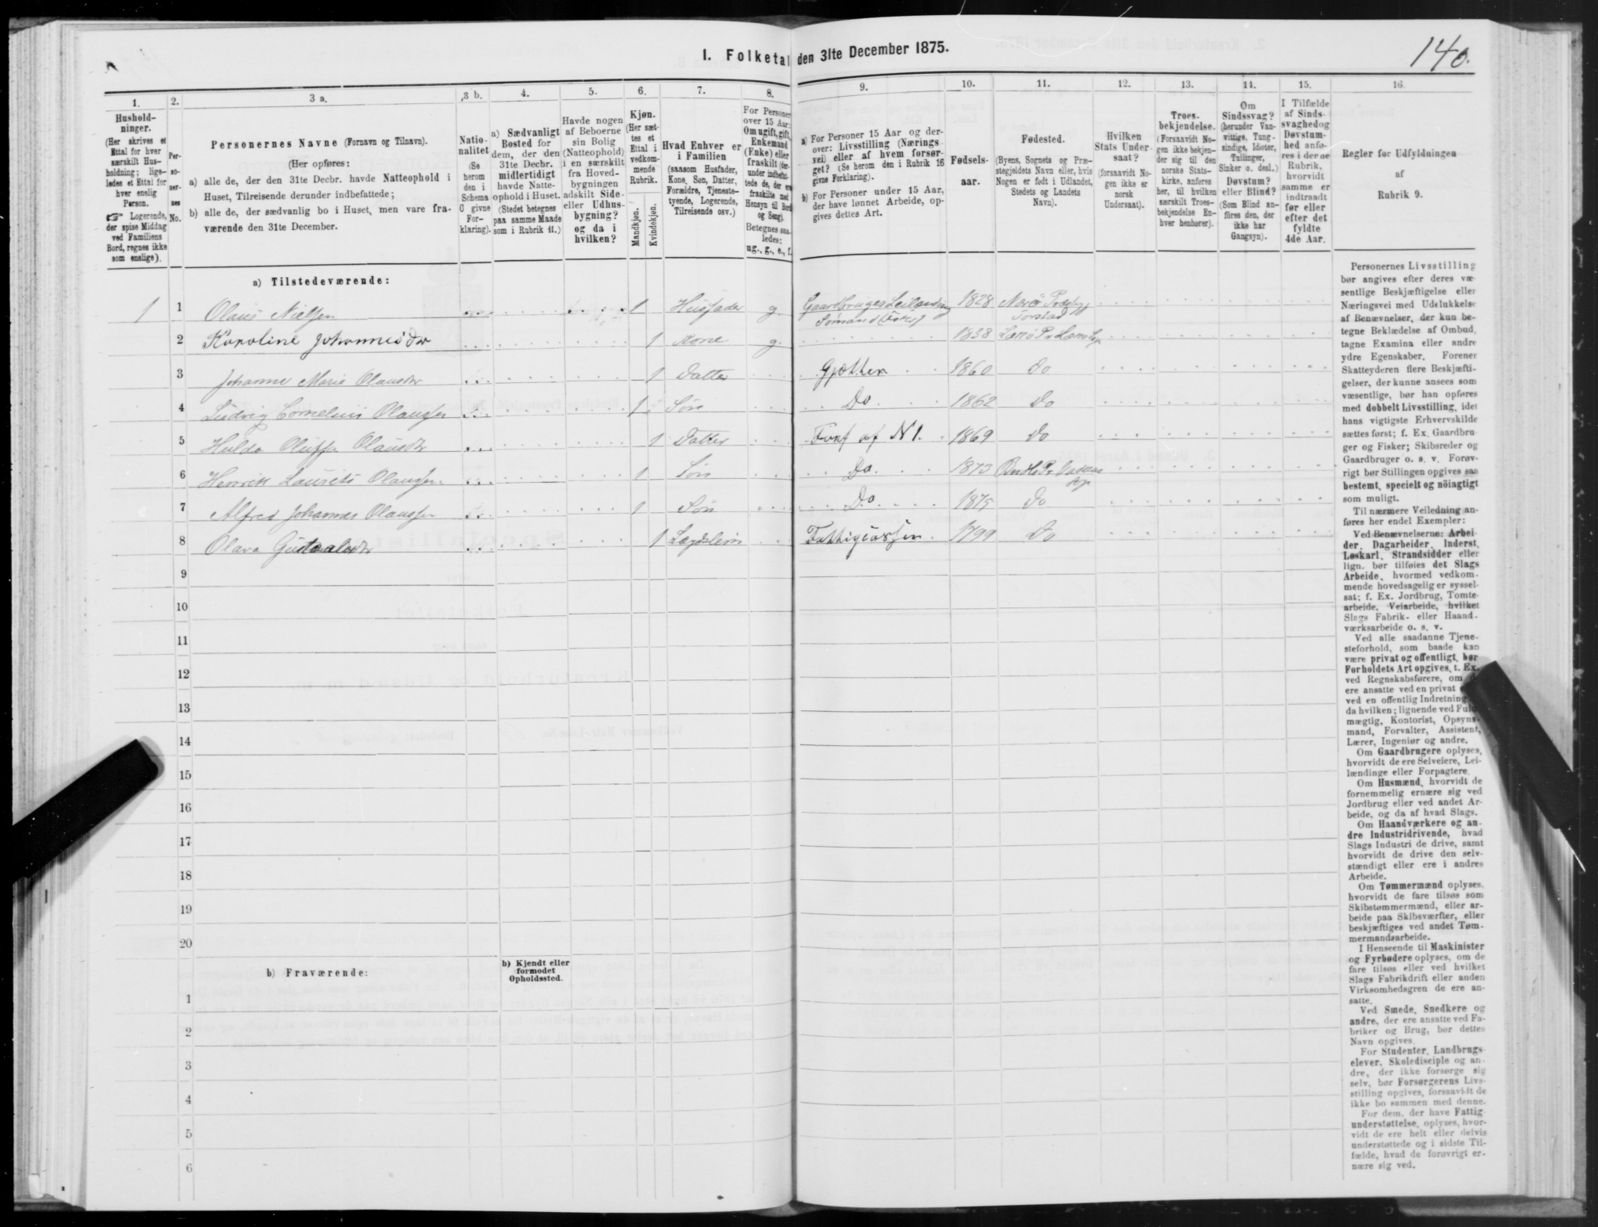 140.
I. Folketal den 31te December 1875.
1.
Hushold-
ninger.
(Her skrives et
Ettal for hver
særskilt Hus-
holdning; lige-
ledes et Ettal for
hver enslig
Person.
☞ Logerende,
der spise Middag
ved Familiens
Bord, regnes ikke
som enslige).
2.
Per-
so-
ner-
nes
No.
3 a.
Personernes Navne (Fornavn og Tilnavn).
(Her opføres:
a) alle de, der den 31te Decbr. havde Natteophold i
Huset, Tilreisende derunder indbefattede;
b) alle de, der sædvanlig bo i Huset, men vare fra-
værende den 31te December.
3 b.
Natio-
nalitet
(Se
herom
den i
Schema
C givne
For-
klaring).
4.
a) Sædvanligt
Bosted for
dem, der den
31te Decbr.
midlertidigt
havde Natte-
ophold i Huset.
(Stedet betegnes
paa samme Maade
som i Rubrik 11.)
5.
Havde nogen
af Beboerne
sin Bolig
(Natteophold)
i en særskilt
fra Hoved-
bygningen
adskilt Side-
eller Udhus-
bygning?
og da i
hvilken?
6.
Kjøn.
(Her sæt-
tes et
Ettal i
vedkom-
mende
Rubrik.
Mandkjøn.
Kvindekjøn.
7.
Hvad Enhver er
i Familien
(saasom Husfader,
Kone, Søn, Datter,
Forældre, Tjeneste-
tyende, Logerende,
Tilreisende osv.)
8.
For Personer
over 15 Aar:
Om ugift, gift,
Enkemand
(Enke) eller
fraskilt (der-
under indbefat-
tede de, der ere
fraskilte med
Hensyn til Bord
og Seng).
Betegnes saa-
ledes:
ug., g., e., f.
9.
a) For Personer 15 Aar og der-
over: Livsstilling (Nærings-
vei) eller af hvem forsør-
get? (Se herom den i Rubrik 16
givne Forklaring).
b) For Personer under 15 Aar,
der have lønnet Arbeide, op-
gives dettes Art.
10.
Fødsels-
aar.
11.
Fødested.
(Byens, Sognets og Præ-
stegjeldets Navn eller, hvis
Nogen er født i Udlandet,
Stedets og Landets
Navn).
12.
Hvilken
Stats Under-
saat?
(forsaavidt No-
gen ikke er
norsk
Undersaat).
13.
Troes-
bekjendelse.
(Forsaavidt No-
gen ikke bekjen-
der sig til den
norske Stats-
kirke, anføres
her, til hvilken
særskilt Troes-
bekjendelse En-
hver henhører).
14.
Om
Sindssvag?
(herunder Van-
vittige, Tung-
sindige, Idioter,
Tullinger,
Sinker o. desl.)
Døvstum?
eller Blind?
(Som Blind an-
føres den, der
ikke har
Gangsyn).
15.
I Tilfælde
af Sinds-
svaghed og
Døvstum-
hed anfø-
res i denne
Rubrik,
hvorvidt
samme er
indtraadt
før eller
efter det
fyldte
4de Aar.
16.
Regler for Udfyldningen
af
Rubrik 9.
a) Tilstedeværende:
1 1 Olaus Nielsen 1 Husfader g. Gaardbruger Leilænding Sømand 1828
2 Karoline Johannisdr 1 Kone g. 1838
3 Johanne Marie Olausdr 1 Datter Gjætter 1860 Do
4 Ludvig Cornelius Olaussen 1 Søn Do. 1862 Do
5 Hulda Oluffa Olausdr 1 Datter Fors af N 1. 1869 Do
6 Henrik Laurits Olaussen. 1 Søn Do. 1873
7 Alfred Johannes Olaussen 1 Søn Do. 1875 Do
8 Olava Gustavsdr 1 Lægdslem Fattigcassen. 1799 Do
9
10
11
12
13
14
15
16
17
18
19
20
b) Fraværende:
b) Kjendt eller
formodet
Opholdssted.
1
2
3
4
5
6
Personernes Livsstilling
bør angives efter deres væ-
sentlige Beskjæftigelse eller
Næringsvei med Udelukkelse
af Benævnelser, der kun be-
tegne Beklædelse af Ombud,
tagne Examina eller andre
ydre Egenskaber. Forener
Skatteyderen flere Beskjæfti-
gelser, der kunne ansees som
væsentlige, bør han opføres
med dobbelt Livsstilling, idet
hans vigtigste Erhvervskilde
sættes først; f. Ex. Gaardbru-
ger og Fisker; Skibsreder og
Gaardbruger o. s. v. Forøv-
rigt bør Stillingen opgives saa
bestemt, specielt og nöiagtigt
som muligt.
Til nærmere Veiledning an-
føres her endel Exempler:
Ved Benævnelserne: Arbei-
der, Dagarbeider, Inderst,
Løskarl, Strandsidder eller
lign. bør tilføies det Slags
Arbeide, hvormed vedkom-
mende hovedsagelig er syssel-
sat; f. Ex. Jordbrug, Tomte-
arbeide, Veiarbeide, hvilket
Slags Fabrik- eller Haand-
værksarbeide o. s. v.
Ved alle saadanne Tjene-
steforhold, som baade kan
være privat og offentligt, bør
Forholdets Art opgives, t. Ex.
ved Regnskabsførere, om
ere ansatte ved en privat
ved en offentlig Indretning
da hvilken; lignende ved Fuld-
mægtig, Kontorist, Opsyns-
mand, Forvalter, Assistent,
Lærer, Ingeniør og andre.
Om Gaardbrugere oplyses,
hvorvidt de ere Selveiere, Lei-
lændinge eller Forpagtere.
Om Husmænd, hvorvidt de
fornemmelig ernære sig ved
Jordbrug eller ved andet Ar-
beide, og da af hvad Slags.
Om Haandværkere og an-
dre Industridrivende, hvad
Slags Industri de drive, samt
hvorvidt de drive den selv-
stændigt eller ere i andres
Arbeide.
Om Tømmermænd oplyses,
hvorvidt de fare tilsøs som
Skibstømmermænd, eller ar-
beide paa Skibsværfter, eller
beskjæftiges ved andet Tøm-
mermandsarbeide.
I Henseende til Maskinister
og Fyrbødere oplyses, om de
fare tilsøs eller ved hvilket
Slags Fabrikdrift eller anden
Virksomhedsgren de ere an-
satte.
Ved Smede, Snedkere og
andre, der ere ansatte ved Fa-
briker og Brug, bør dettes
Navn opgives.
For Studenter, Landbrugs-
elever, Skoledisciple og an-
dre, der ikke forsørge sig
selv, bør Forsørgerens Livs-
stilling opgives, forsaavidt de
ikke bo sammen med denne.
For dem, der have Fattig-
understøttelse, oplyses, hvor-
vidt de ere helt eller delvis
understøttede og i sidste Til-
fælde, hvad de forøvrigt er-
nære sig ved.